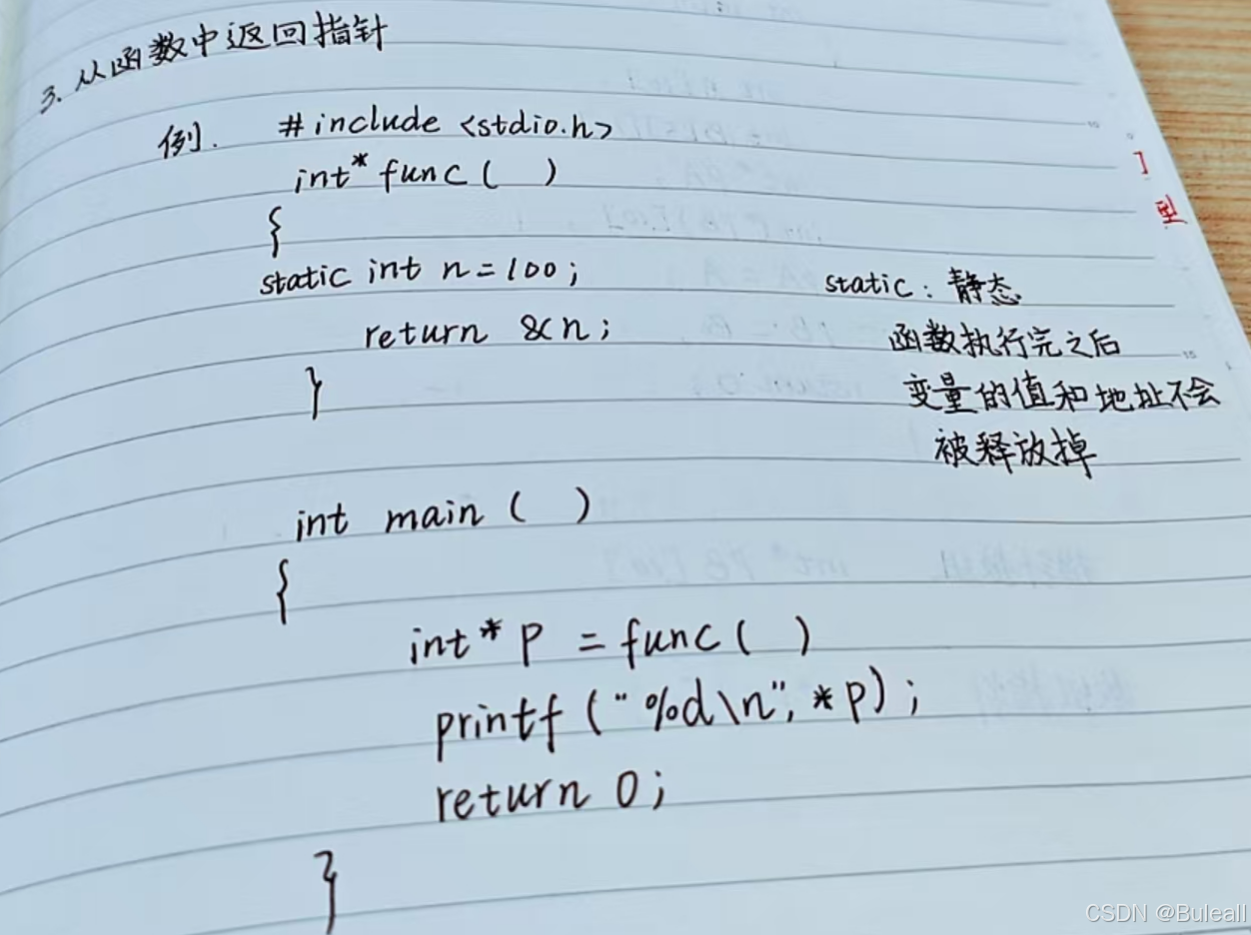 3. 从函数中返回指针
例. #include <stdio.h>
int* func( )
{
static int n = 100; static: 静态
return &n; 函数执行完之后
} 变量的值和地址不会
被释放掉
int main ( )
{
int* p = func( )
printf("%d\n", *p);
return 0;
}
型
CSDN @Buleall